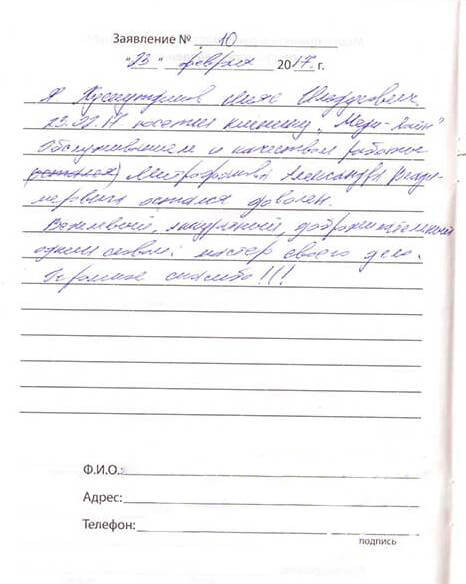 Заявление № 10
"23" февраля 2017 г.
Я Хуснутдинов
23.02.17 посетил клинику "Меди-Лайн"
Обслуживанием и качеством работы
(остался) Митрофанова Александра Влади-
мировича остался доволен.
Вежливый, аккуратный, доброжелательный
одним словом: мастер своего дела.
Огромное спасибо!!!
Ф.И.О.:
Адрес:
Телефон:
подпись